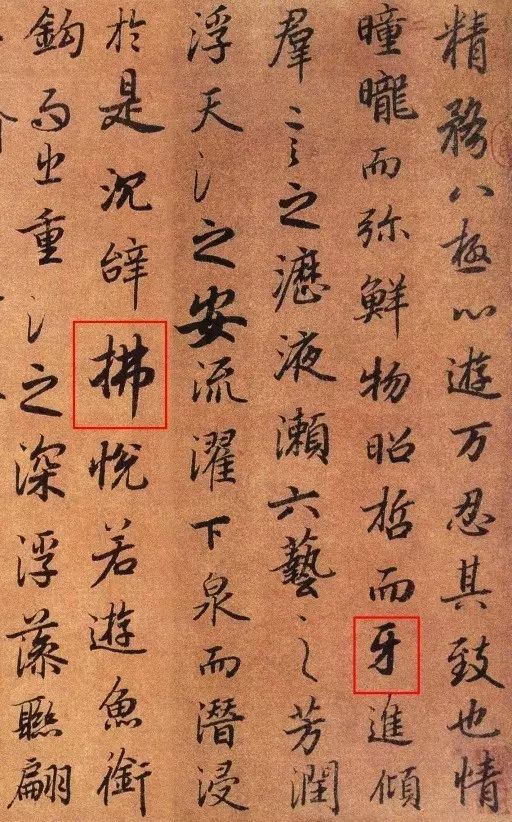 精務八極心遊万忍其致也情
曈曨而弥鮮物昭晢而牙進傾
羣言之瀝液瀨六藝之芳潤
浮天淵之安流濯下泉而潛浸
於是沉辝拂悅若遊魚銜
鉤而出重淵之深浮藻聯翩